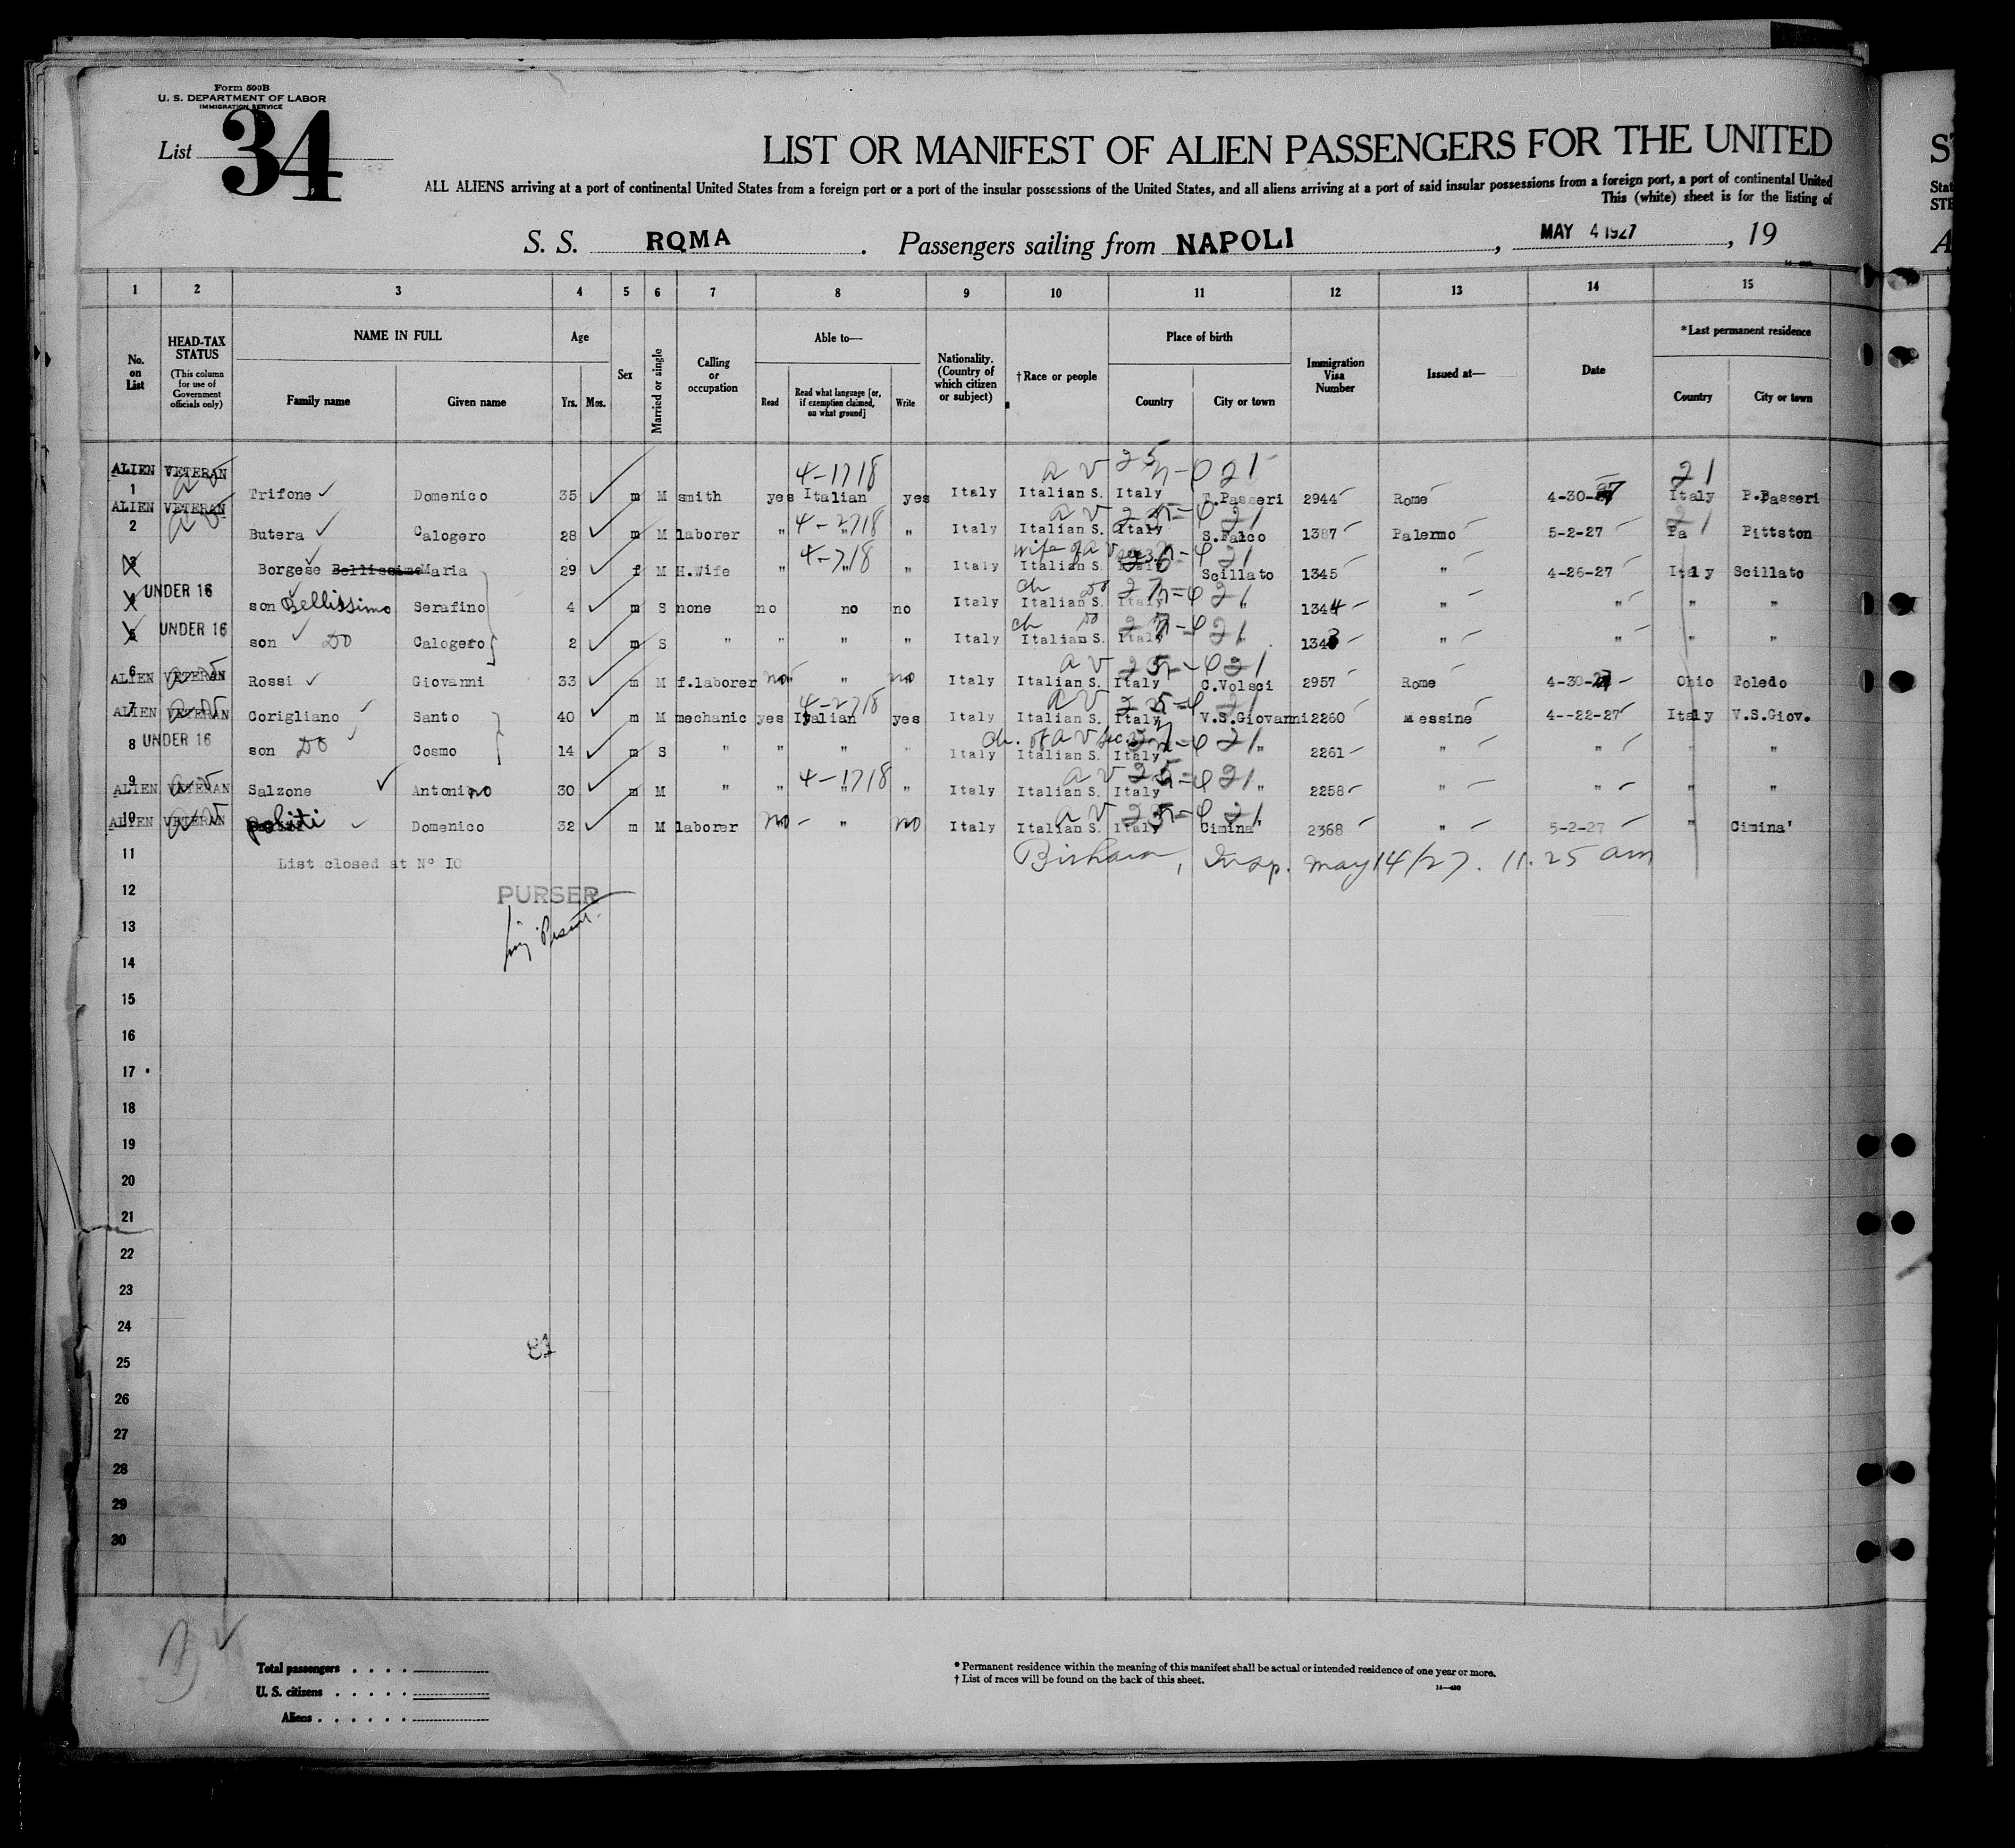 Form 500B
U. S. DEPARTMENT OF LABOR
IMMIGRATION SERVICE
List 34
LIST OR MANIFEST OF ALIEN PASSENGERS FOR THE UNITED
ALL ALIENS arriving at a port of continental United States from a foreign port or a port of the insular possessions of the United States, and all aliens arriving at a port of said insular possessions from a foreign port, a port of continental United
This (white) sheet is for the listing of
S. S. ROMA. Passengers sailing from NAPOLI, MAY 4 1927, 19
1 2 3 4 5 6 7 8 9 10 11 12 13 14 15
No. on List
HEAD-TAX STATUS (This column for use of Government officials only)
NAME IN FULL
Family name Given name
Age
Yrs. Mos.
Sex
Married or single
Calling or occupation
Able to—
Read Read what language [or, if exemption claimed, on what ground] Write
Nationality. (Country of which citizen or subject)
†Race or people
Place of birth
Country City or town
Immigration Visa Number
Issued at—
Date
*Last permanent residence
Country City or town
4-1718 a v 25 21 21
ALIEN VETERAN
1 av Trifone Domenico 35 m M smith yes Italian yes Italy Italian S. Italy Passeri 2944 Rome 4-30-27 Italy P.Passeri
ALIEN VETERAN 4-2718 a v 21 21
2 av Butera Calogero 28 m M laborer " " " Italy Italian S. Italy S.Falco 1387 Palermo 5-2-27 Pa Pittston
4-718 wife of a v 21
3 Borgese Bellissimo Maria 29 f M H.Wife " " " Italy Italian S. Italy Scillato 1345 " 4-26-27 Italy Scillato
UNDER 16 ch Do 21
4 son Bellissimo Serafino 4 m S none no no no Italy Italian S. Italy " 1344 " " " "
UNDER 16 ch Do 21
5 son Do Calogero 2 m S " " " " Italy Italian S. Italy " 1343 " " " "
a v 21
6 ALIEN VETERAN av Rossi Giovanni 33 m M f.laborer no " no Italy Italian S. Italy C.Volsci 2957 Rome 4-30-27 Ohio Toledo
4-2718 a v 21
7 ALIEN VETERAN av Corigliano Santo 40 m M mechanic yes Italian yes Italy Italian S. Italy V.S.Giovanni 2260 Messine 4--22-27 Italy V.S.Giov.
UNDER 16 ch. of a v 21
8 son Do Cosmo 14 m S " " " " Italy Italian S. Italy " 2261 " " " "
4-1718 a v 21
9 ALIEN VETERAN av Salzone Antonino 30 m M " " " " Italy Italian S. Italy " 2258 " " " "
a v 21
10 ALIEN VETERAN av politi Domenico 32 m M laborer no " no Italy Italian S. Italy Cimina' 2368 " 5-2-27 " Cimina'
11 List closed at N° 10 Insp. may 14/27. 11.25 am
12 PURSER
13
14
15
16
17
18
19
20
21
22
23
24
25
26
27
28
29
30
Total passengers
U. S. citizens
Aliens
* Permanent residence within the meaning of this manifest shall be actual or intended residence of one year or more.
† List of races will be found on the back of this sheet.
14—430